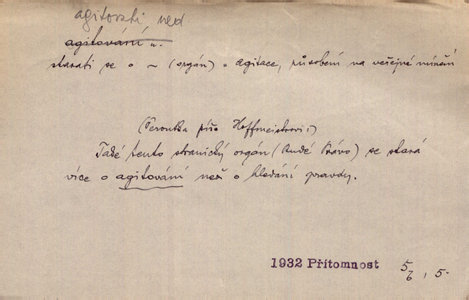 agitovati, ned
agitování n.
starati se o ~ (orgán) = agitace, působení na veřejné mínění
(Peroutka píše Hoffmeistrovi:)
Také tento stranický orgán (Rudé Právo) se stará
více o agitování než o hledání pravdy.
1932 Přítomnost 5/6, 5.